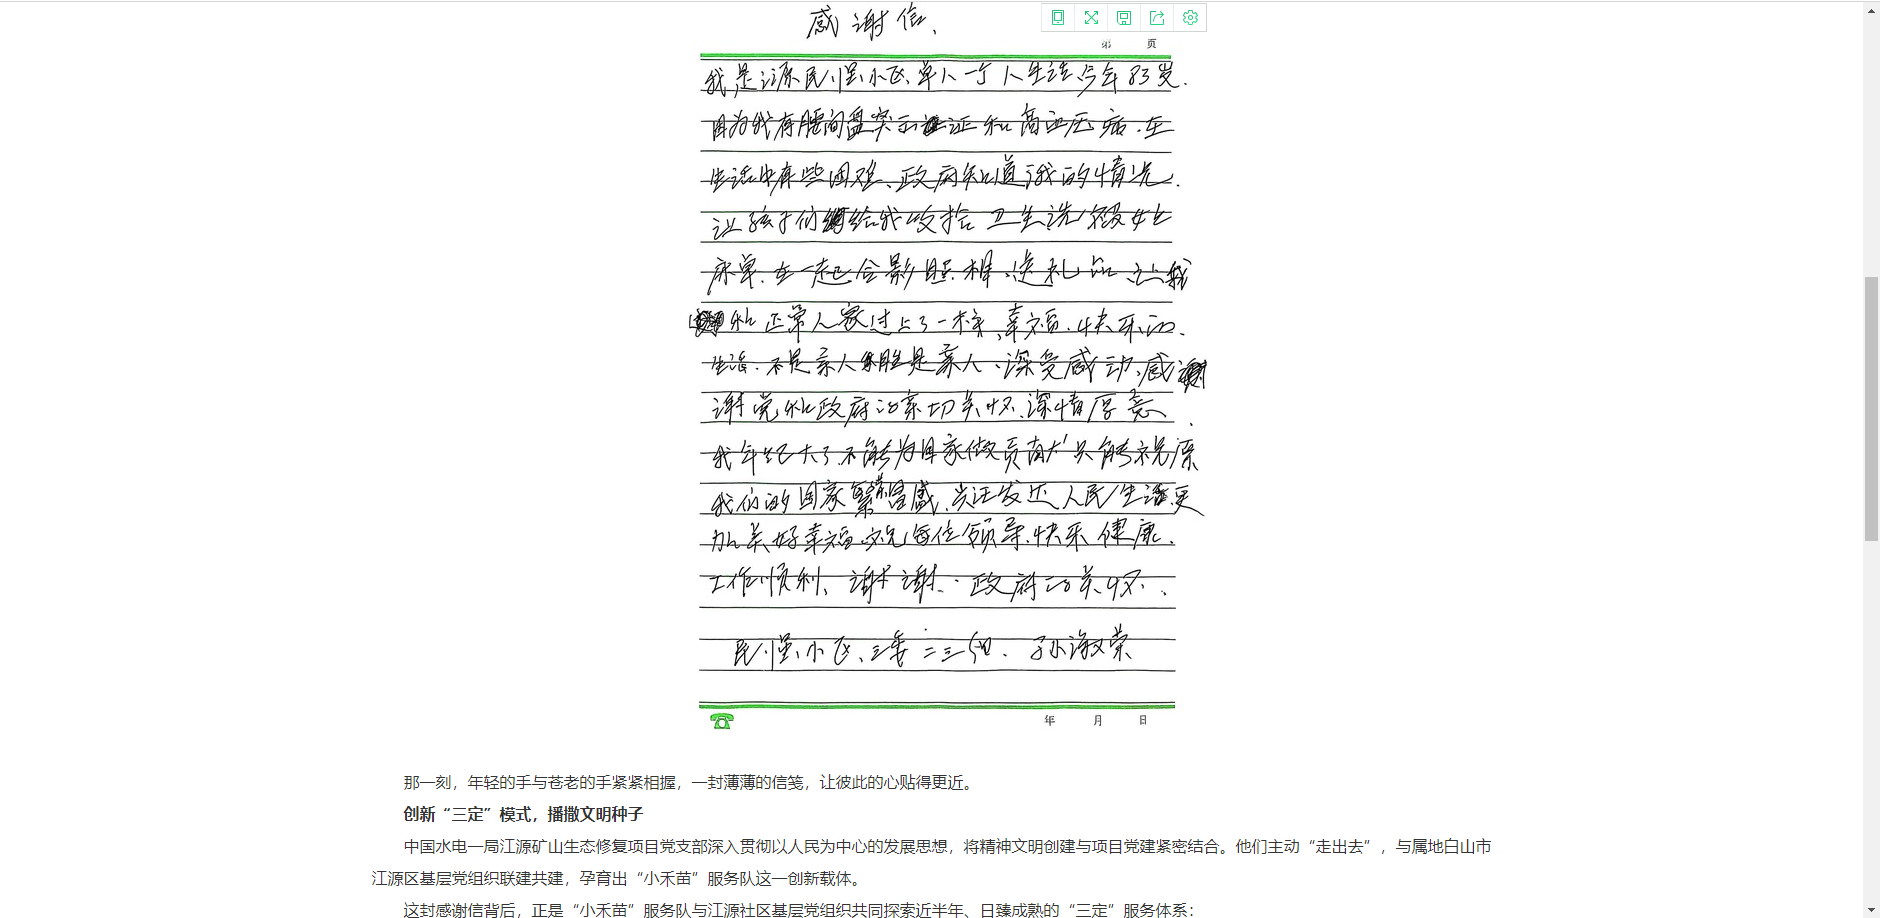 感谢信、
第 页
我是江源民憬小区、单人一个人生活、今年83岁.
因为我有腰间盘突出证和高血压病.在
生活中有些困难、政府知道我的情况.
让孩子们给我收拾卫生洗被
床单.在一起合影照相、送礼品、让我
和正常人家过上了一样、幸福.快乐的.
生活.不是亲人胜是亲人、深受感动、感
谢党和政府的亲切关怀、深情厚意、
我年纪大了.不能为国家做贡献只能祝愿
我们的国家繁荣昌盛、兴旺发达人民生活更
加美好幸福.祝每位领导.快乐健康.
工作顺利、谢谢.政府的关怀、
民憬小区、三委二三组. 孙淑荣
年 月 日
那一刻，年轻的手与苍老的手紧紧相握，一封薄薄的信笺，让彼此的心贴得更近。
创新“三定”模式，播撒文明种子
中国水电一局江源矿山生态修复项目党支部深入贯彻以人民为中心的发展思想，将精神文明创建与项目党建紧密结合。他们主动“走出去”，与属地白山市
江源区基层党组织联建共建，孕育出“小禾苗”服务队这一创新载体。
这封感谢信背后，正是“小禾苗”服务队与江源社区基层党组织共同探索近半年、日臻成熟的“三定”服务体系：